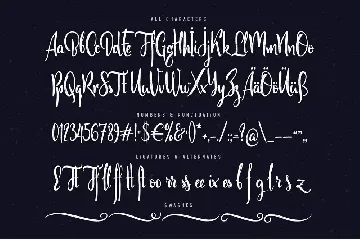 ALL CHARACTERS
AaBbCcDdEe FfGgHhIiJjKkLlMmNnOo
PpQqRrSsTt UuVvWwXxYyZzÄäÖöÜüß
NUMBERS & PUNCTUATION
0123456789#!$€%&()*+,-./:;=?@\_
LIGATURES & ALTERNATES
oo rr ss ee b f g l r s z
SWASHES